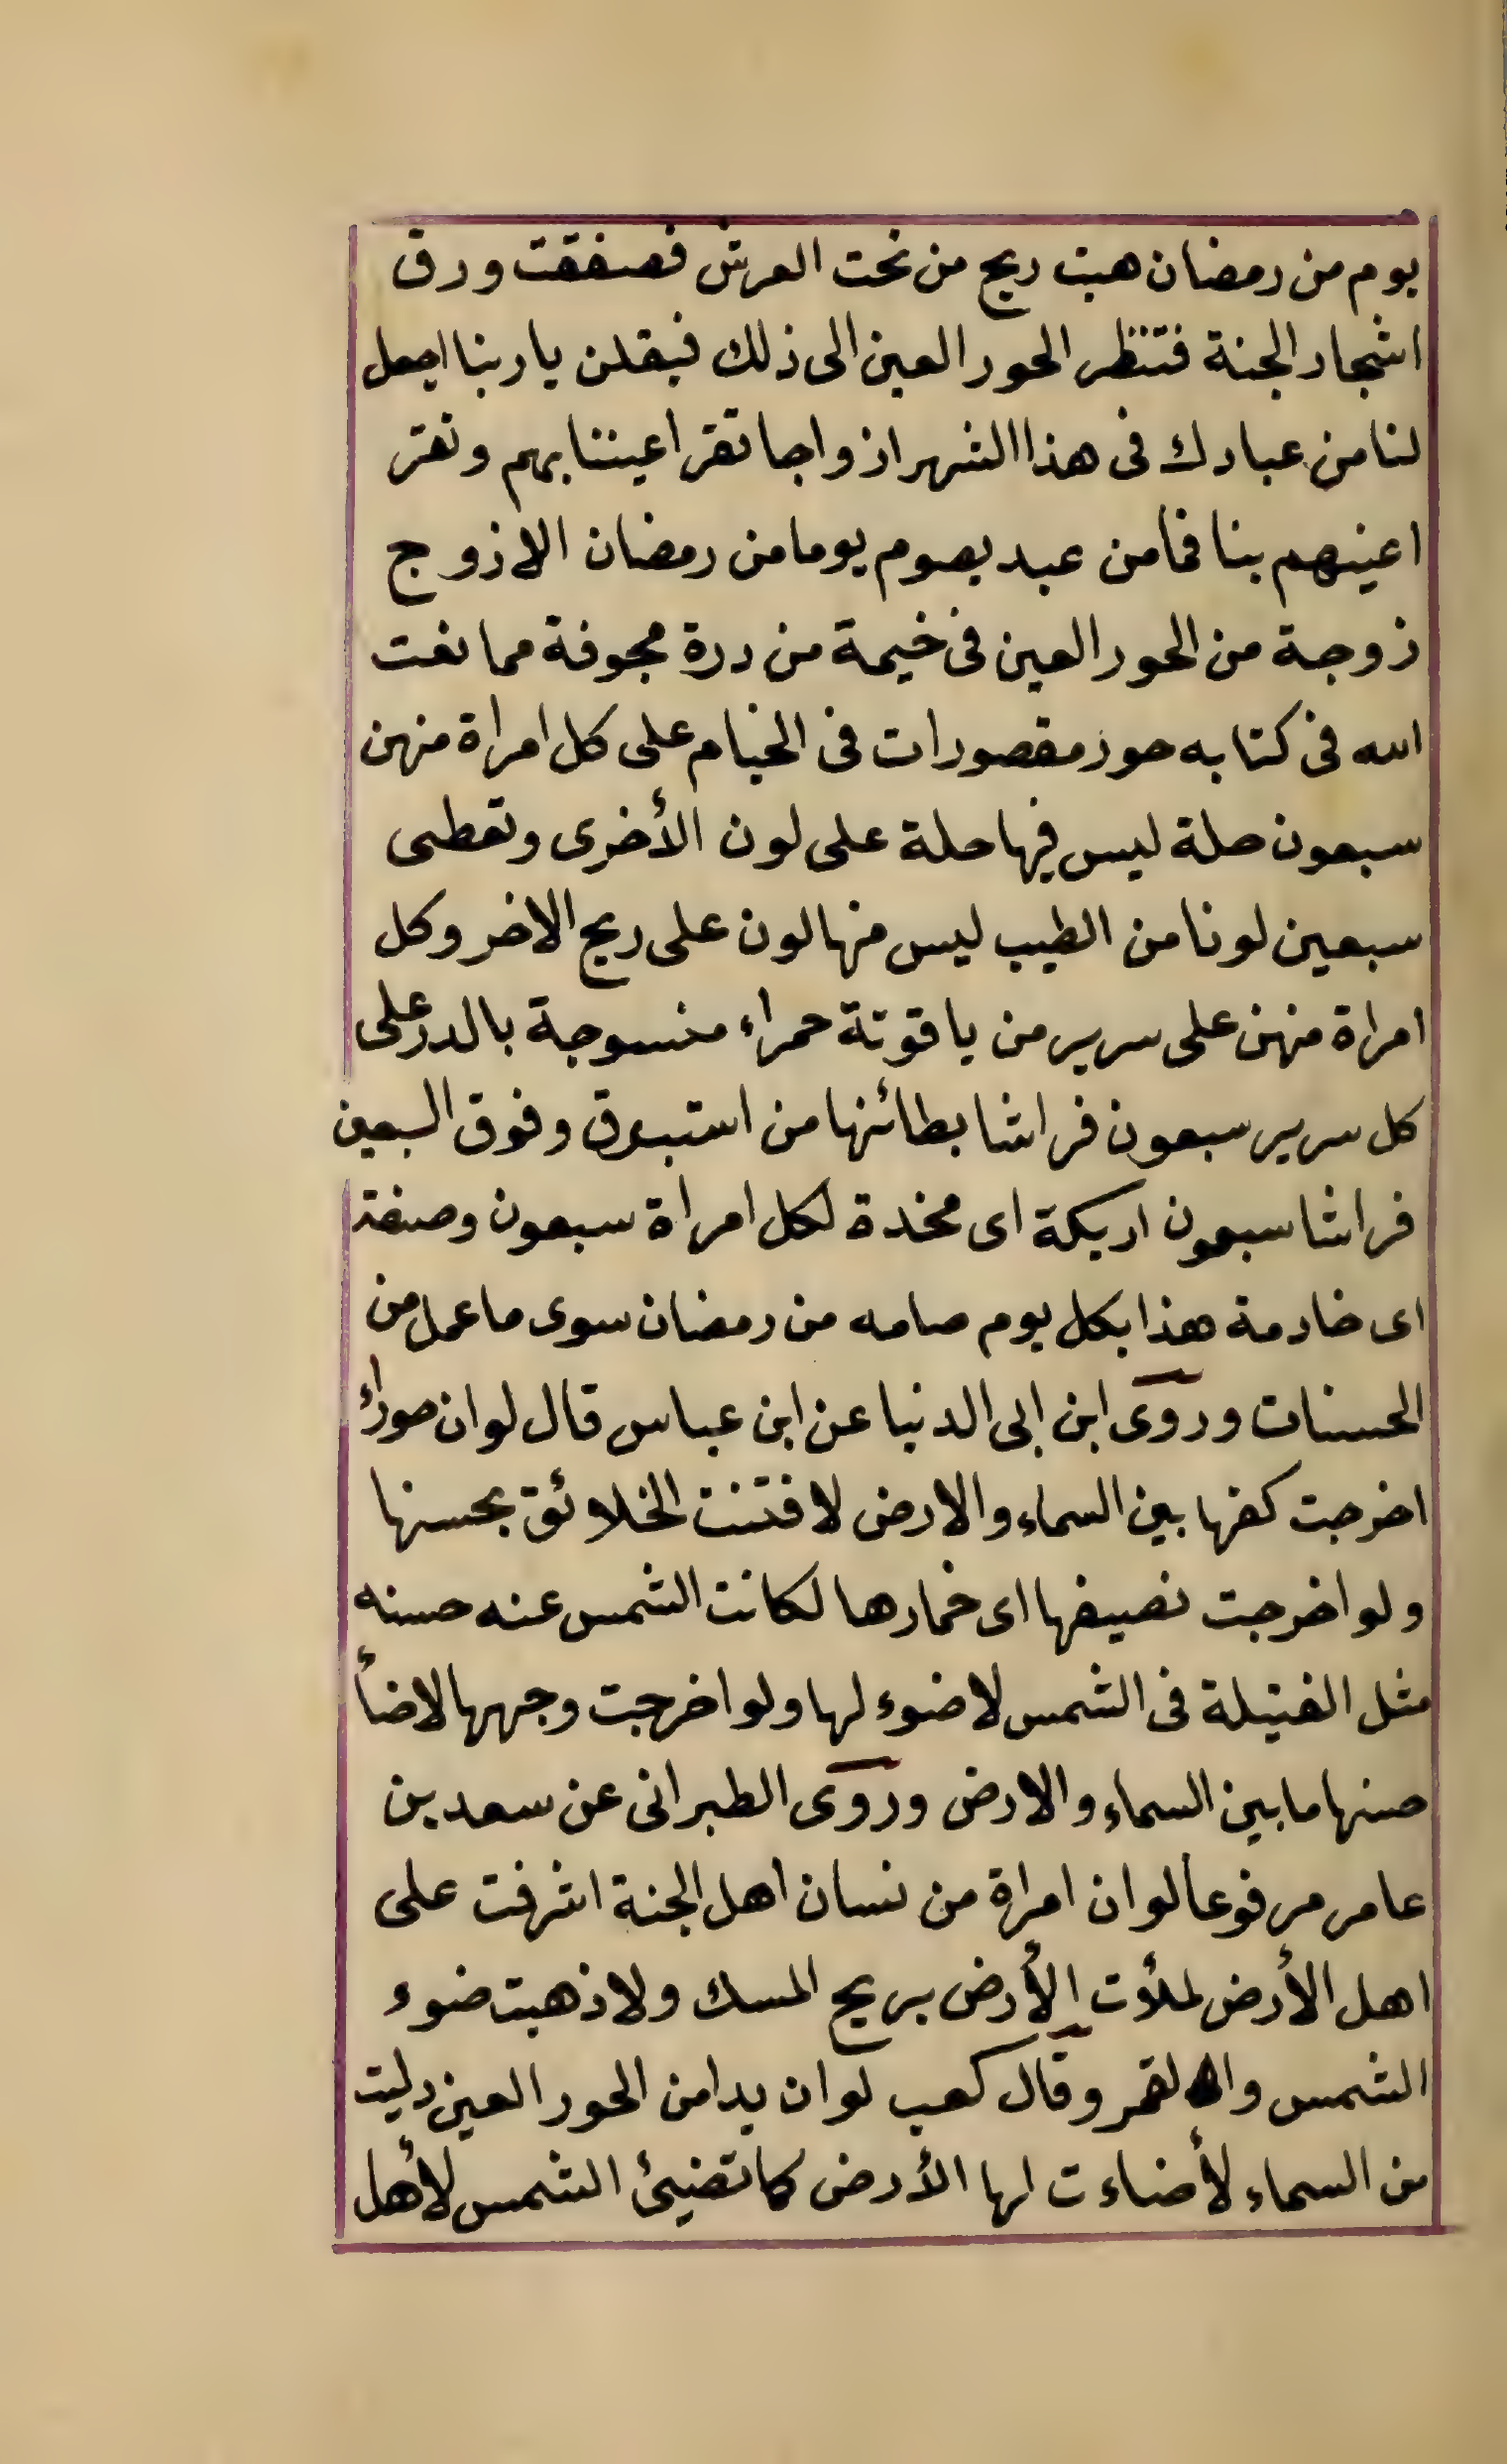 يوم من رمضان هبت ريح من تحت العرش فصفقت ورق
اشجار الجنة فتنظر الحور العين الى ذلك فيقلن يا ربنا اجعل
لنا من عبادك فى هذا الشهر ازواجا تقر اعيننا بهم وتقر
اعينهم بنا فما من عبد يصوم يوما من رمضان الا زوج
زوجة من الحور العين فى خيمة من درة مجوفة مما نعت
الله فى كتابه حور مقصورات فى الخيام على كل امراة منهن
سبعون حلة ليس فيها حلة على لون الأخرى وتعطى
سبعين لونا من الطيب ليس منها لون على ريح الاخر وكل
امراة منهن على سرير من ياقوتة حمراء منسوجة بالدر على
كل سرير سبعون فراشا بطائنها من استبرق وفوق السبعين
فراشا سبعون اريكة اى مخدة لكل امراة سبعون وصفة
اى خادمة هذا بكل يوم صامه من رمضان سوى ما عمل من
الحسنات وروى ابن ابى الدنيا عن ابن عباس قال لو ان حوراء
اخرجت كفها بين السماء والارض لافتنت الخلائق بحسنها
ولو اخرجت نصيفها اى خمارها لكانت الشمس عنه حسنه
مثل الفتيلة فى الشمس لا ضوء لها ولو اخرجت وجهها لاضأ
حسنها ما بين السماء والارض وروى الطبرانى عن سعد بن
عامر مرفوعا لو ان امراة من نسان اهل الجنة اشرفت على
اهل الأرض لملأت الأرض بريح المسك ولاذهبت ضوء
الشمس والقمر وقال كعب لو ان يدا من الحور العين دليت
من السماء لأضاءت لها الأرض كما تضيئ الشمس لأهل